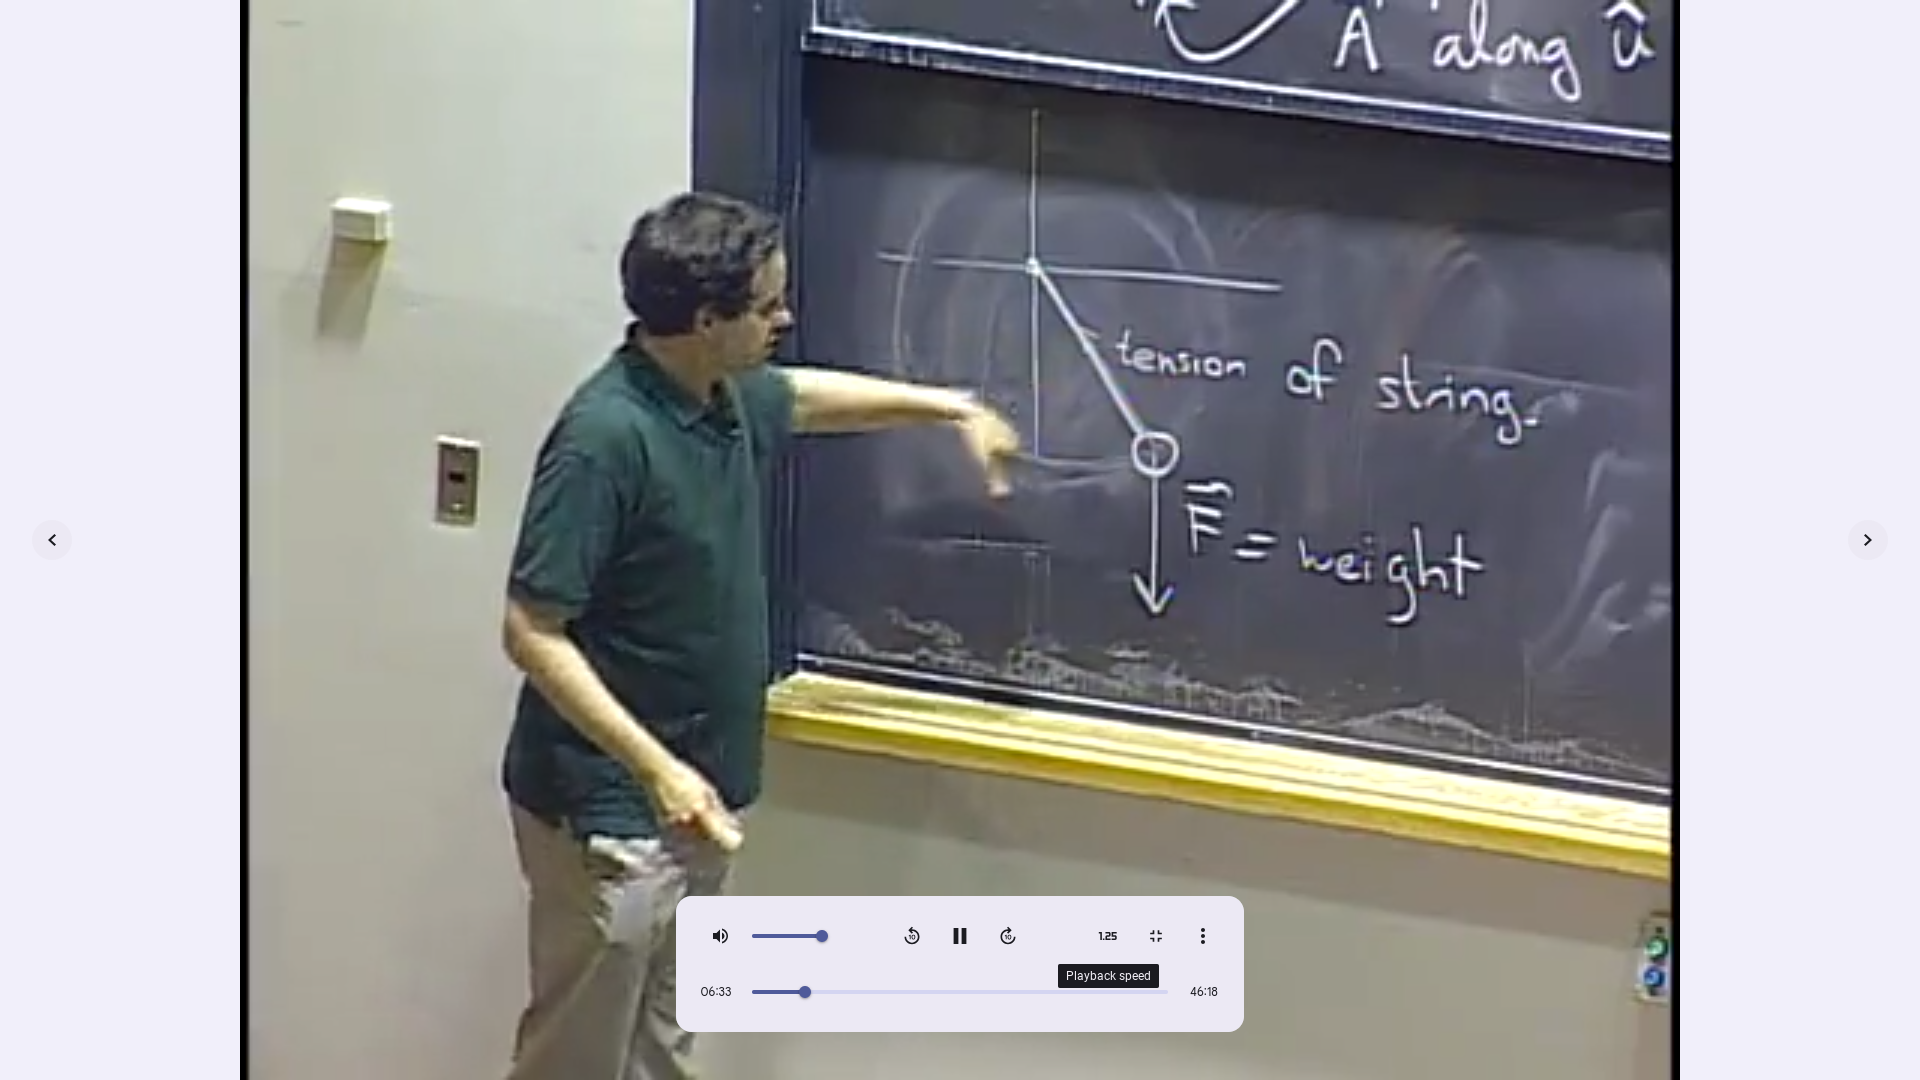 A along û
tension of string.
F⃗ = weight
10
10
1.25
Playback speed
06:33
46:18